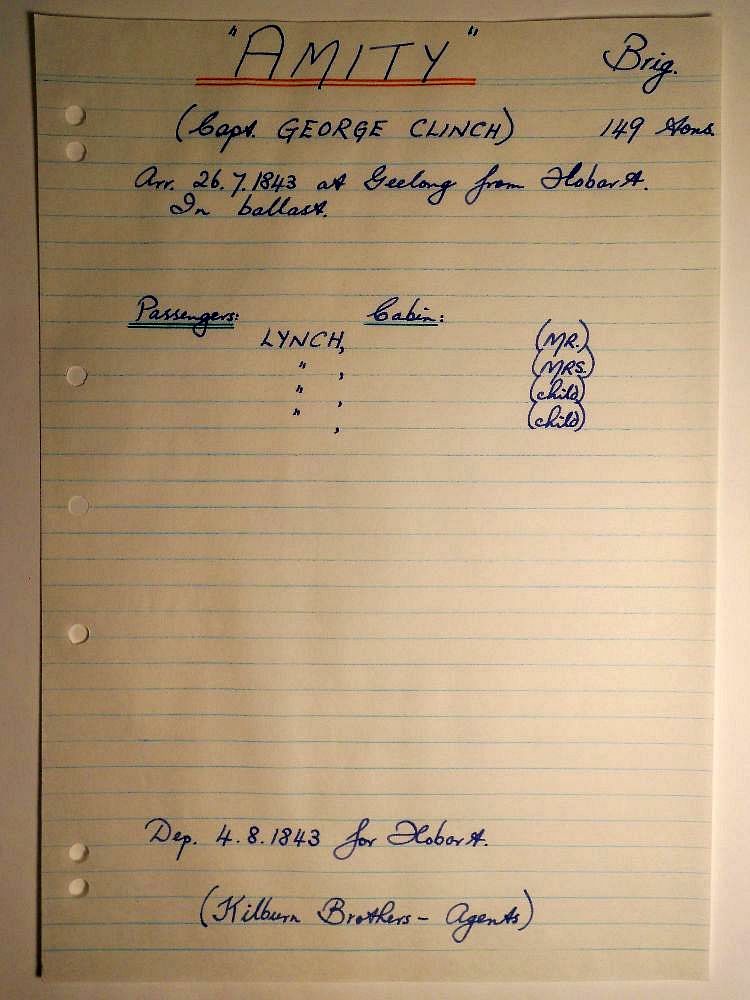 "AMITY" Brig.
(Capt. GEORGE CLINCH) 149 tons.
Arr. 26.7.1843 at Geelong from Hobart.
In ballast.
Passengers: Cabin:
LYNCH, (MR.)
" , (MRS.)
" , (child)
" , (child)
Dep. 4.8.1843 for Hobart.
(Kilburn Brothers - Agents)